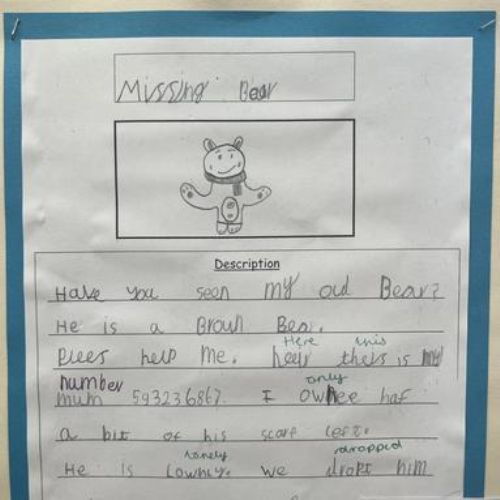 Missing Bear
Description
Have you seen my old Bear?
He is a Broun Bear.
Here this
Plees help me. heeir theirs is my
number only
mum 593236867. I owhee haf
a bit of his scarf left.
lonely dropped
He is lownly. we dropt him